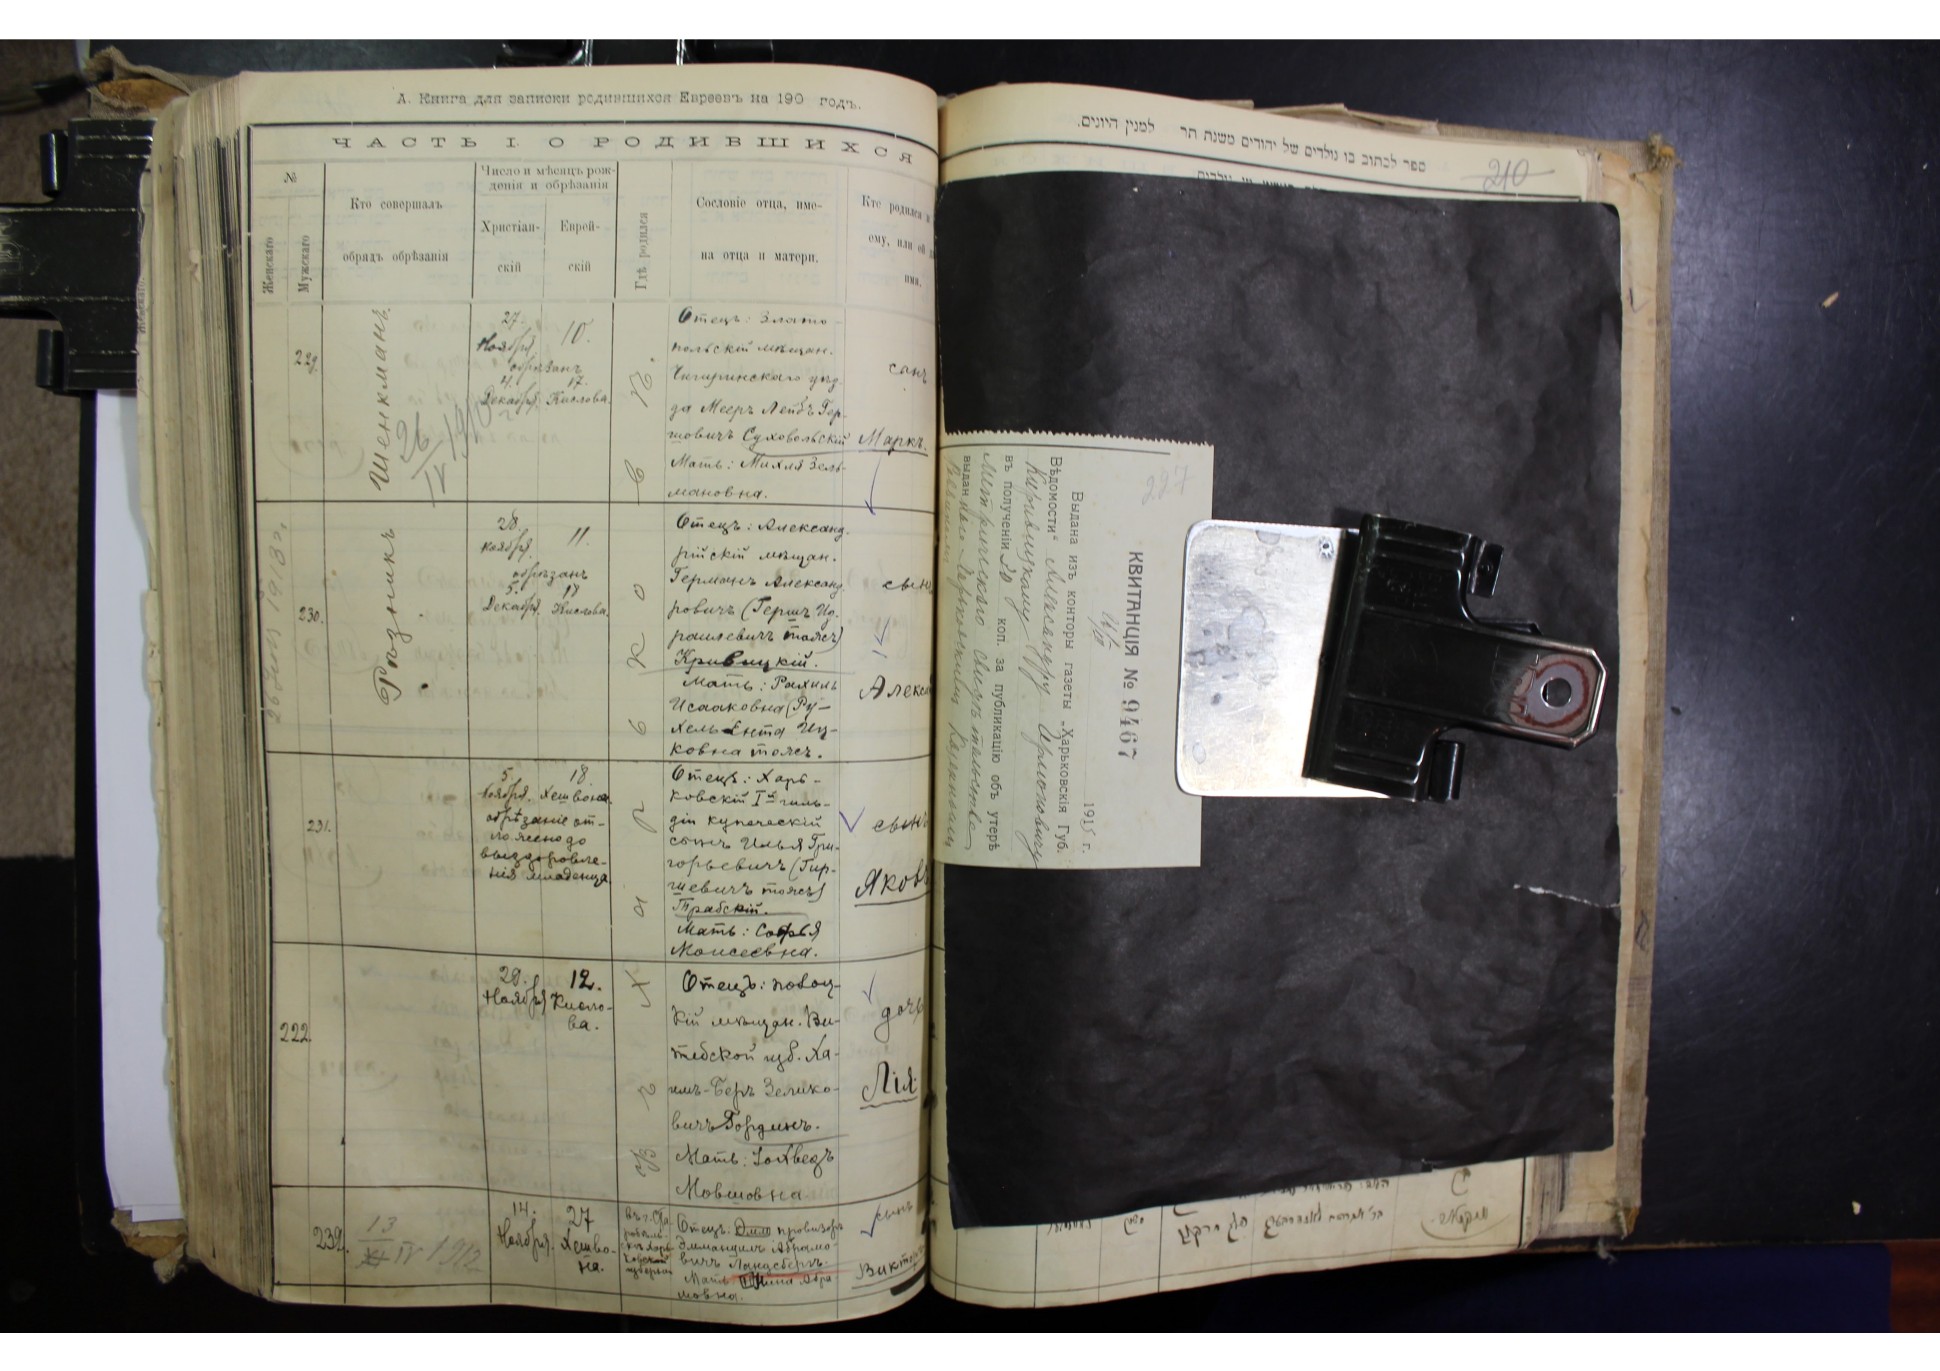 А. Книга для записки родившихся Евреевъ на 190 годъ.
ЧАСТЬ I О РОДИВШИХСЯ
№
Женскаго
Мужскаго
Кто совершалъ
обрядъ обрѣзанія
Число и мѣсяцъ рож-
денія и обрѣзанія
Христіан-
скій
Еврей-
скій
Гдѣ родился
Сословіе отца, име-
на отца и матери.
Кто родился и
ему, или ей
имя.
229.
Шенкманъ
26/IV 1910
27.
Ноября
10.
обрѣзанъ
4. 17.
Декабря. Кислова.
Отецъ: Злато-
польскій мѣщан.
Чигиринскаго уѣз-
да Мееръ Лейбъ Гер-
шовичъ Суховольскій
Мать: Михля Зель-
мановна.
сынъ
Маркъ.
230.
Рѣзникъ
1918 г.
28.
ноября.
11.
обрѣзанъ
5. 18
Декабря. Кислова.
Отецъ: Александ-
рійскій мѣщан.
Германъ Александ-
ровичъ (Герш Из-
раилевичъ тожъ)
Кривицкій.
Мать: Рахиль
Исааковна (Ру-
хель Ента Иц-
ковна тожъ.
сынъ
Алекса
231.
5. 18.
Ноября. Хешвона.
обрѣзаніе от-
ложено до
выздоровле-
нія младенца
Отецъ: Харь-
ковскій 1й гиль-
діи купеческій
сынъ Илья Гри-
горьевичъ (Гир-
шевичъ тожъ)
Трабскій.
Мать: Софья
Моисеевна.
сынъ
Яковъ
222.
29. 12.
Ноября Кисло-
ва.
Отецъ: полоц-
кій мѣщан. Ви-
тебской губ. Ха-
имъ-Беръ Зелико-
вичъ Гординъ.
Мать: Іохведъ
Мовшовна
дочь
Лія
Въ г. Харьковѣ.
232.
13
IV 1912
14. 27
Ноября. Хешво-
на.
Отецъ: провизоръ
Эммануилъ Абрамо-
вичъ Ландсбергъ.
Мать Абра-
мовна.
сынъ
Викт
ספר לכתוב בו נולדים של יהודים משנת תר למנין היונים.
210
227
КВИТАНЦІЯ № 9467
1915 г.
Выдана изъ конторы газеты „Харьковскія Губ.
Вѣдомости“ Александру
Кривицкому
въ полученіи 30 коп. за публикацію объ утерѣ
Метрическаго свидѣтельства
выданнаго Харьковскимъ
Раввиномъ